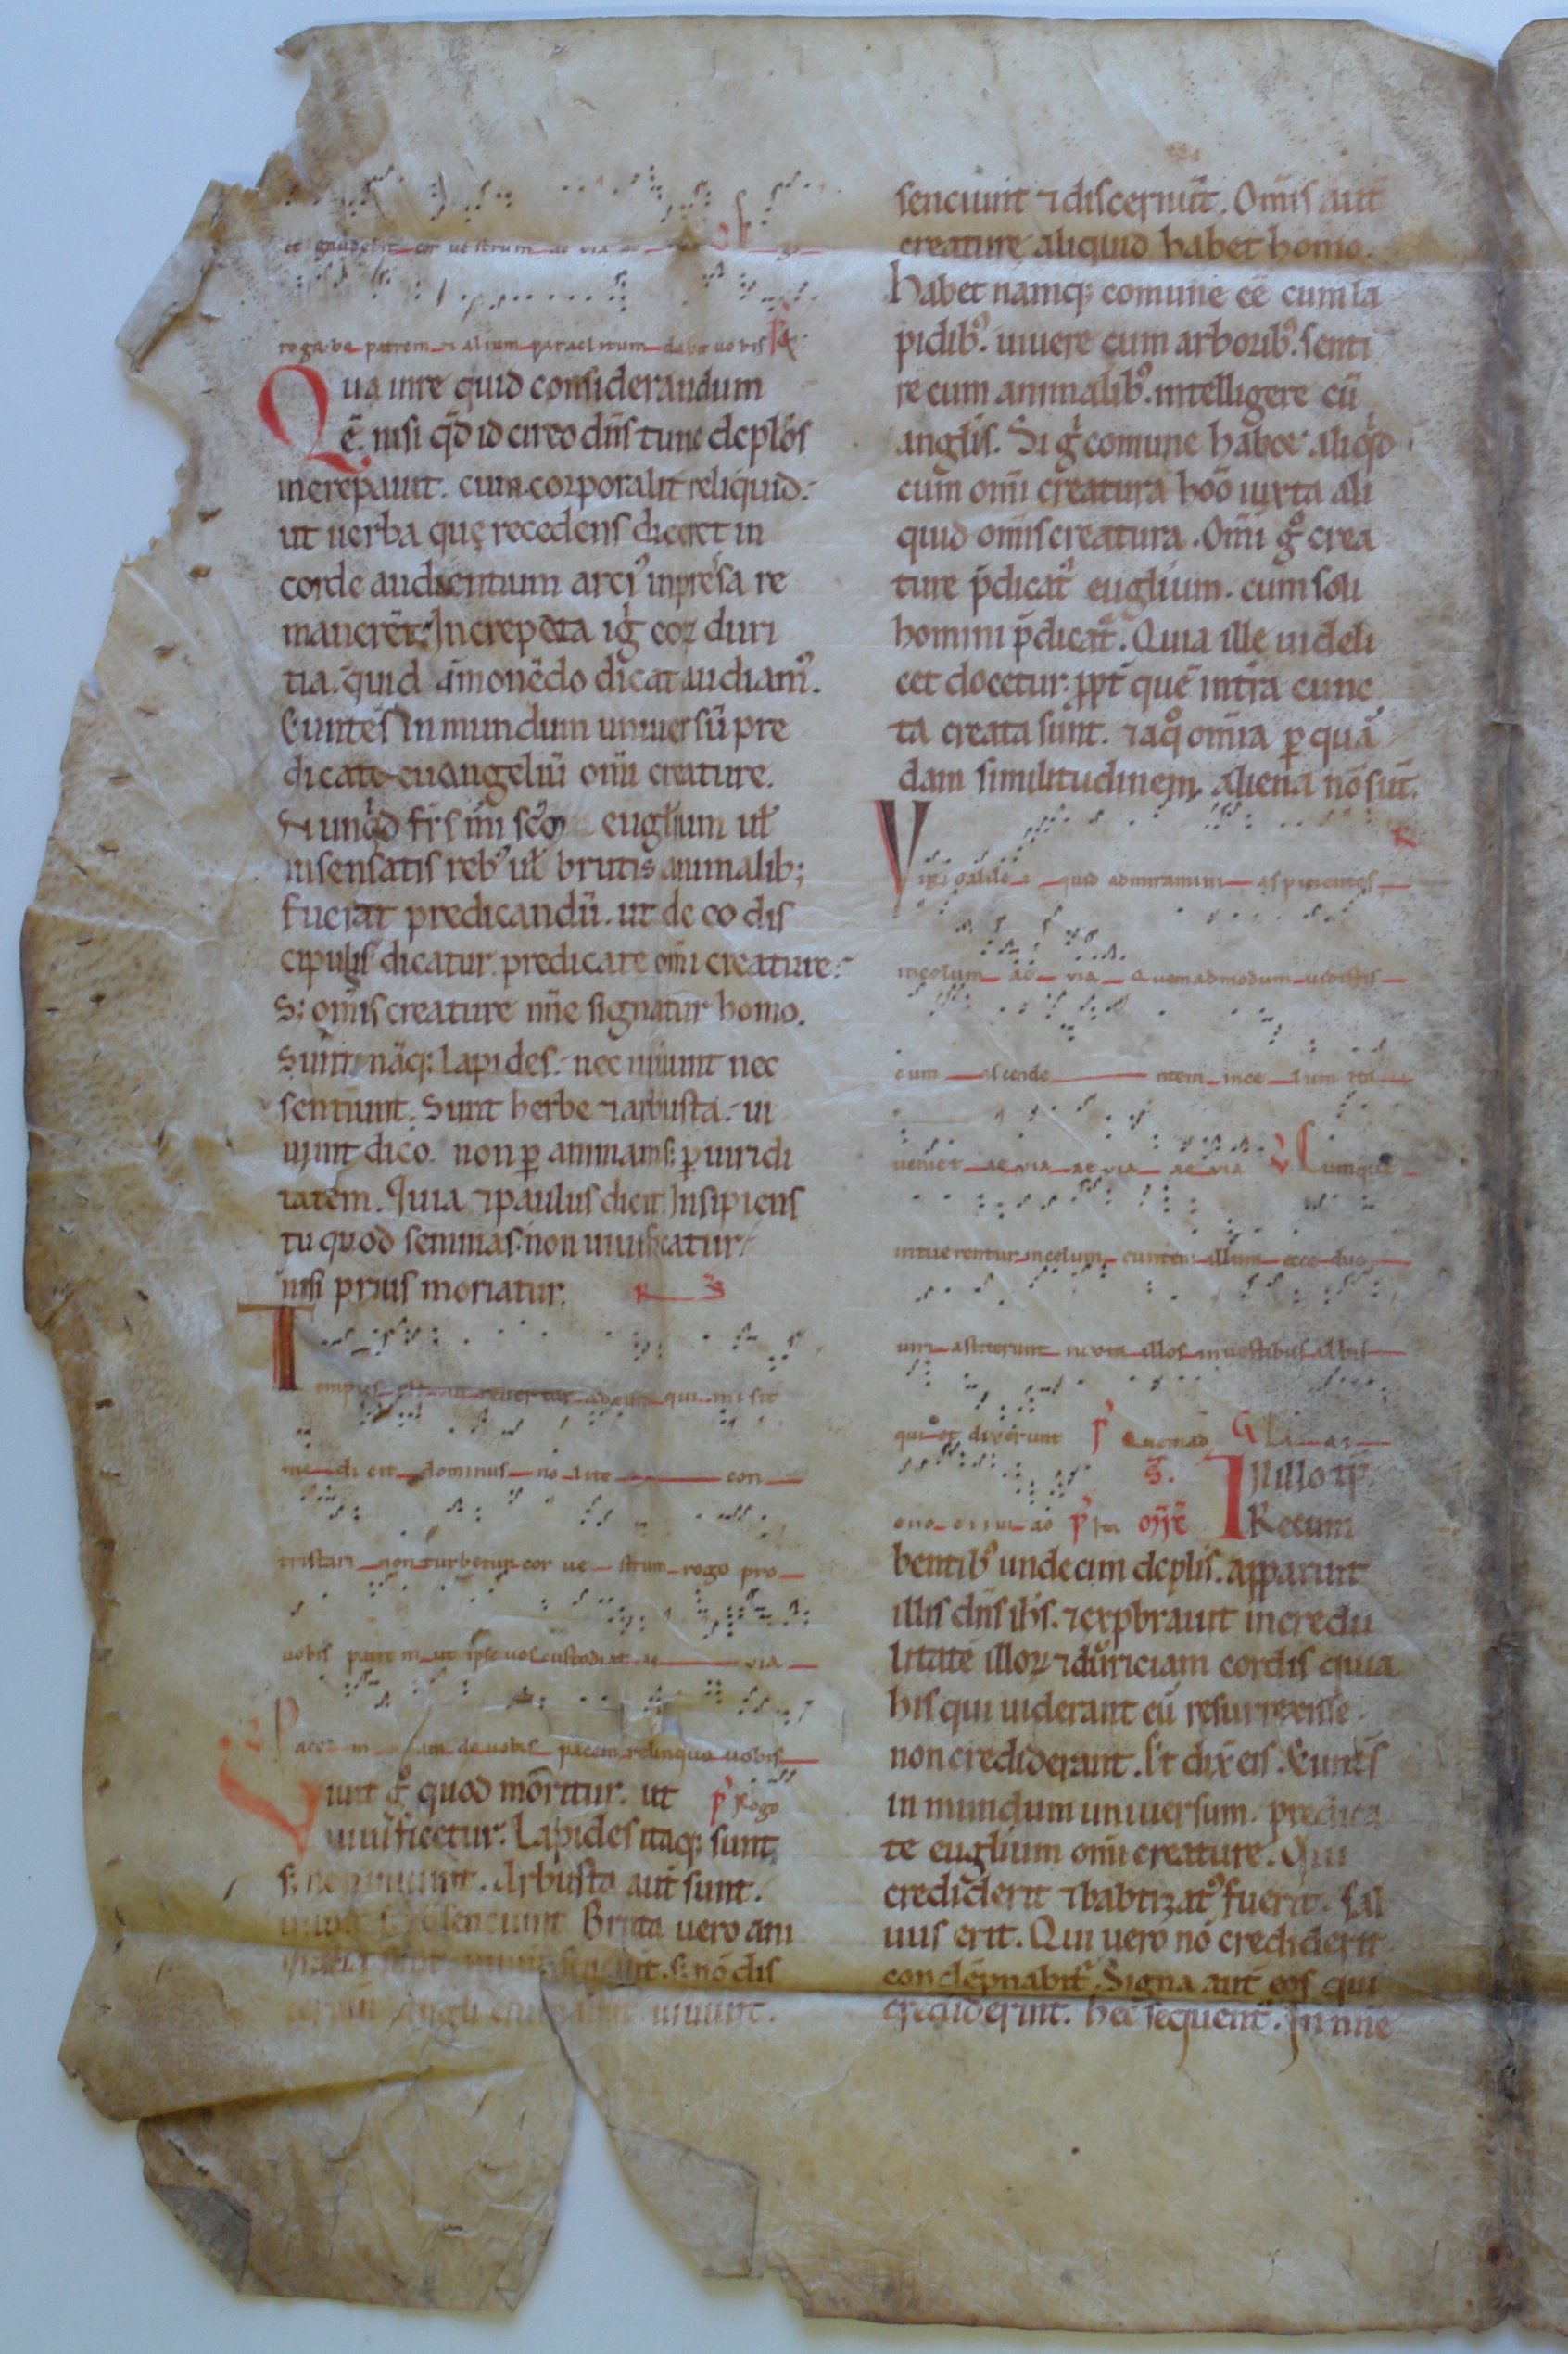 et gaudebit cor vestrum ae via ℣ Ego
rogabo patrem ⁊ alium paraclitum dabit vobis
Qua in re quid considerandum
ē. nisi qd̄ idcirco dn̄s tunc dc̄plōs
increpauit. cum corporalit̄ reliquid.
ut uerba quę recedens diceret in
corde audientium arciꝰ inpressa re
manerēt. Increpata igͥ eoꝝ duri
tia. quid āmonēdo dicat audiamꝰ.
Euntes in mundum uniuersū pre
dicate euangeliū om̄i creature.
Nunqͥd fr̄s m̄i sc̄m euglium ul̄
insensatis rebꝰ ul̄ brutis animalib;
fuerat predicandū. ut de eo dis
cipulis dicatur predicate om̄i creature.
S; om̄is creature nn̄e signatur homo.
Sunt nāq; lapides. nec uiuunt nec
sentiunt. Sunt herbe ⁊ arbusta. ui
uunt dico. non ꝑ animam s; ꝑ uiridi
tatem. Quia ⁊ paulus dicit Insipiens
tu quod seminas non uiuificatur.
nisi prius moriatur. R
Tempus est ut revertar ad eum qui misit
me dicit dominus nolite con
tristari non turbetur cor vestrum rogo pro
vobis patrem ut ipse vos custodiat ae via
℣ Pacem meam do vobis pacem relinquo vobis
Uiuit gͦ quod moritur. ut p̕ Rogo
uiuificetur. Lapides itaq; sunt
s; nec uiuunt. Arbusta aut̄ sunt.
senciunt Bruta uero ani
malia sunt uiuunt senciunt. s; nō dis
cernūt Angli sunt uiuunt.
senciunt ⁊ discernūt. Om̄is aut̄
creature aliquid habet homo.
Habet namq; comune eē cum la
pidibꝰ. uiuere cum arboribꝰ. senti
re cum animalibꝰ. intelligere cū
angl̄is. Si gͥ comune habet aliqͥd
cum om̄i creatura homo iuxta ali
quid om̄is creatura. Om̄i gͦ crea
ture p̄dicatꝰ euglium. cum soli
homini p̄dicat̄. Quia ille uideli
cet docetur. ꝓpt̄ quē intͥa cunc
ta creata sunt. ⁊ aqͦ omnia ꝑ quā
dam similitudinem aliena nō sūt.
R
Viri galilei quid admiramini aspicientes
in celum ae via Quemadmodum vidistis
eum ascendentem in celum ita
veniet ae via ae via ae via ℣ Cumque
intuerentur in celum euntem illum ecce duo
viri astiterunt iuxta illos in vestibus albis
qui et dixerunt p̕ Quemad Gla
S. In illo tp̄.
Recum
bentibꝰ undecim dc̄plis. apparuit
illis dn̄s ih̄s. ⁊ exp̄brauit incredu
litatē illoꝝ ⁊ duriciam cordis quia
his qui uiderant eū resurrexisse.
non crediderant. Et dix̄ eis. Euntes
in mundum uniuersum. predica
te euglium om̄i creature. Qui
crediderit ⁊ babtizatꝰ fuerit. sal
uus erit. Qui uero nō crediderit
condēpnabit̄. Signa aut̄ eos qui
crediderint. hec sequent̄. In nn̄e